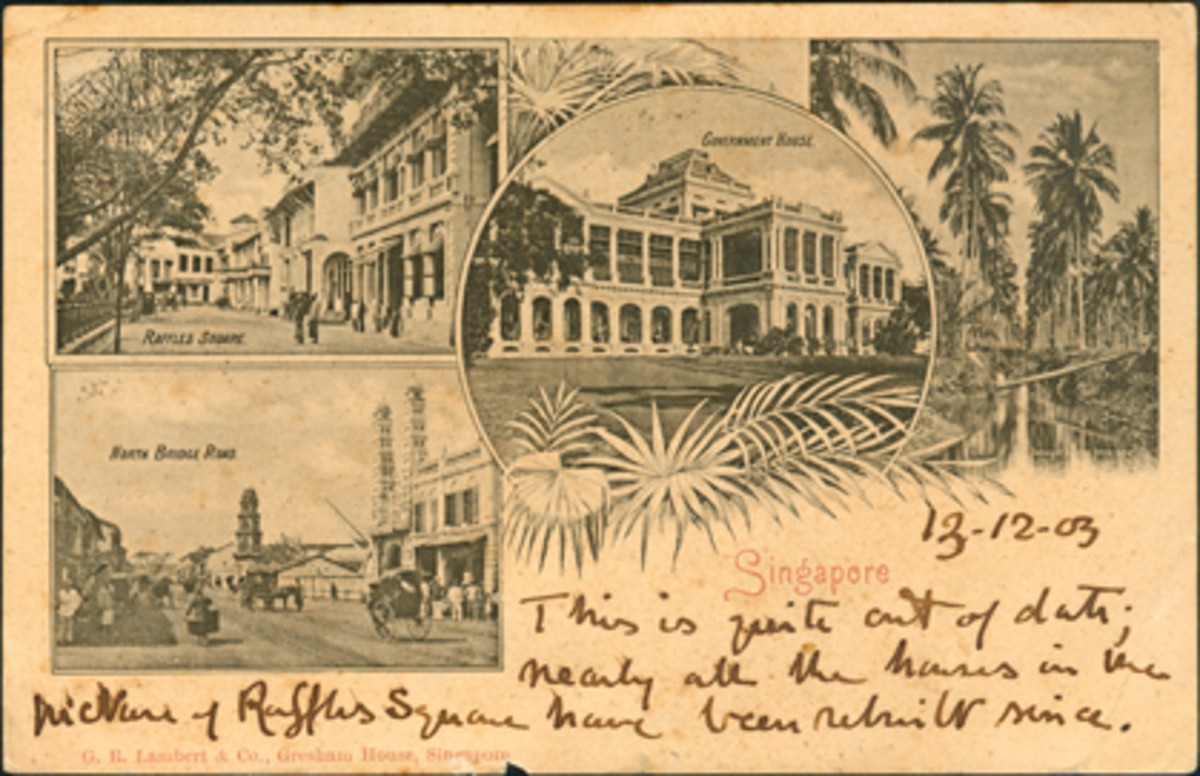 GOVERNMENT HOUSE.
RAFFLES SQUARE.
NORTH BRIDGE ROAD.
13-12-03
Singapore
This is quite out of date;
nearly all the houses in the
picture of Raffles Square have been rebuilt since.
G. R. Lambert & Co., Gresham House, Singapore